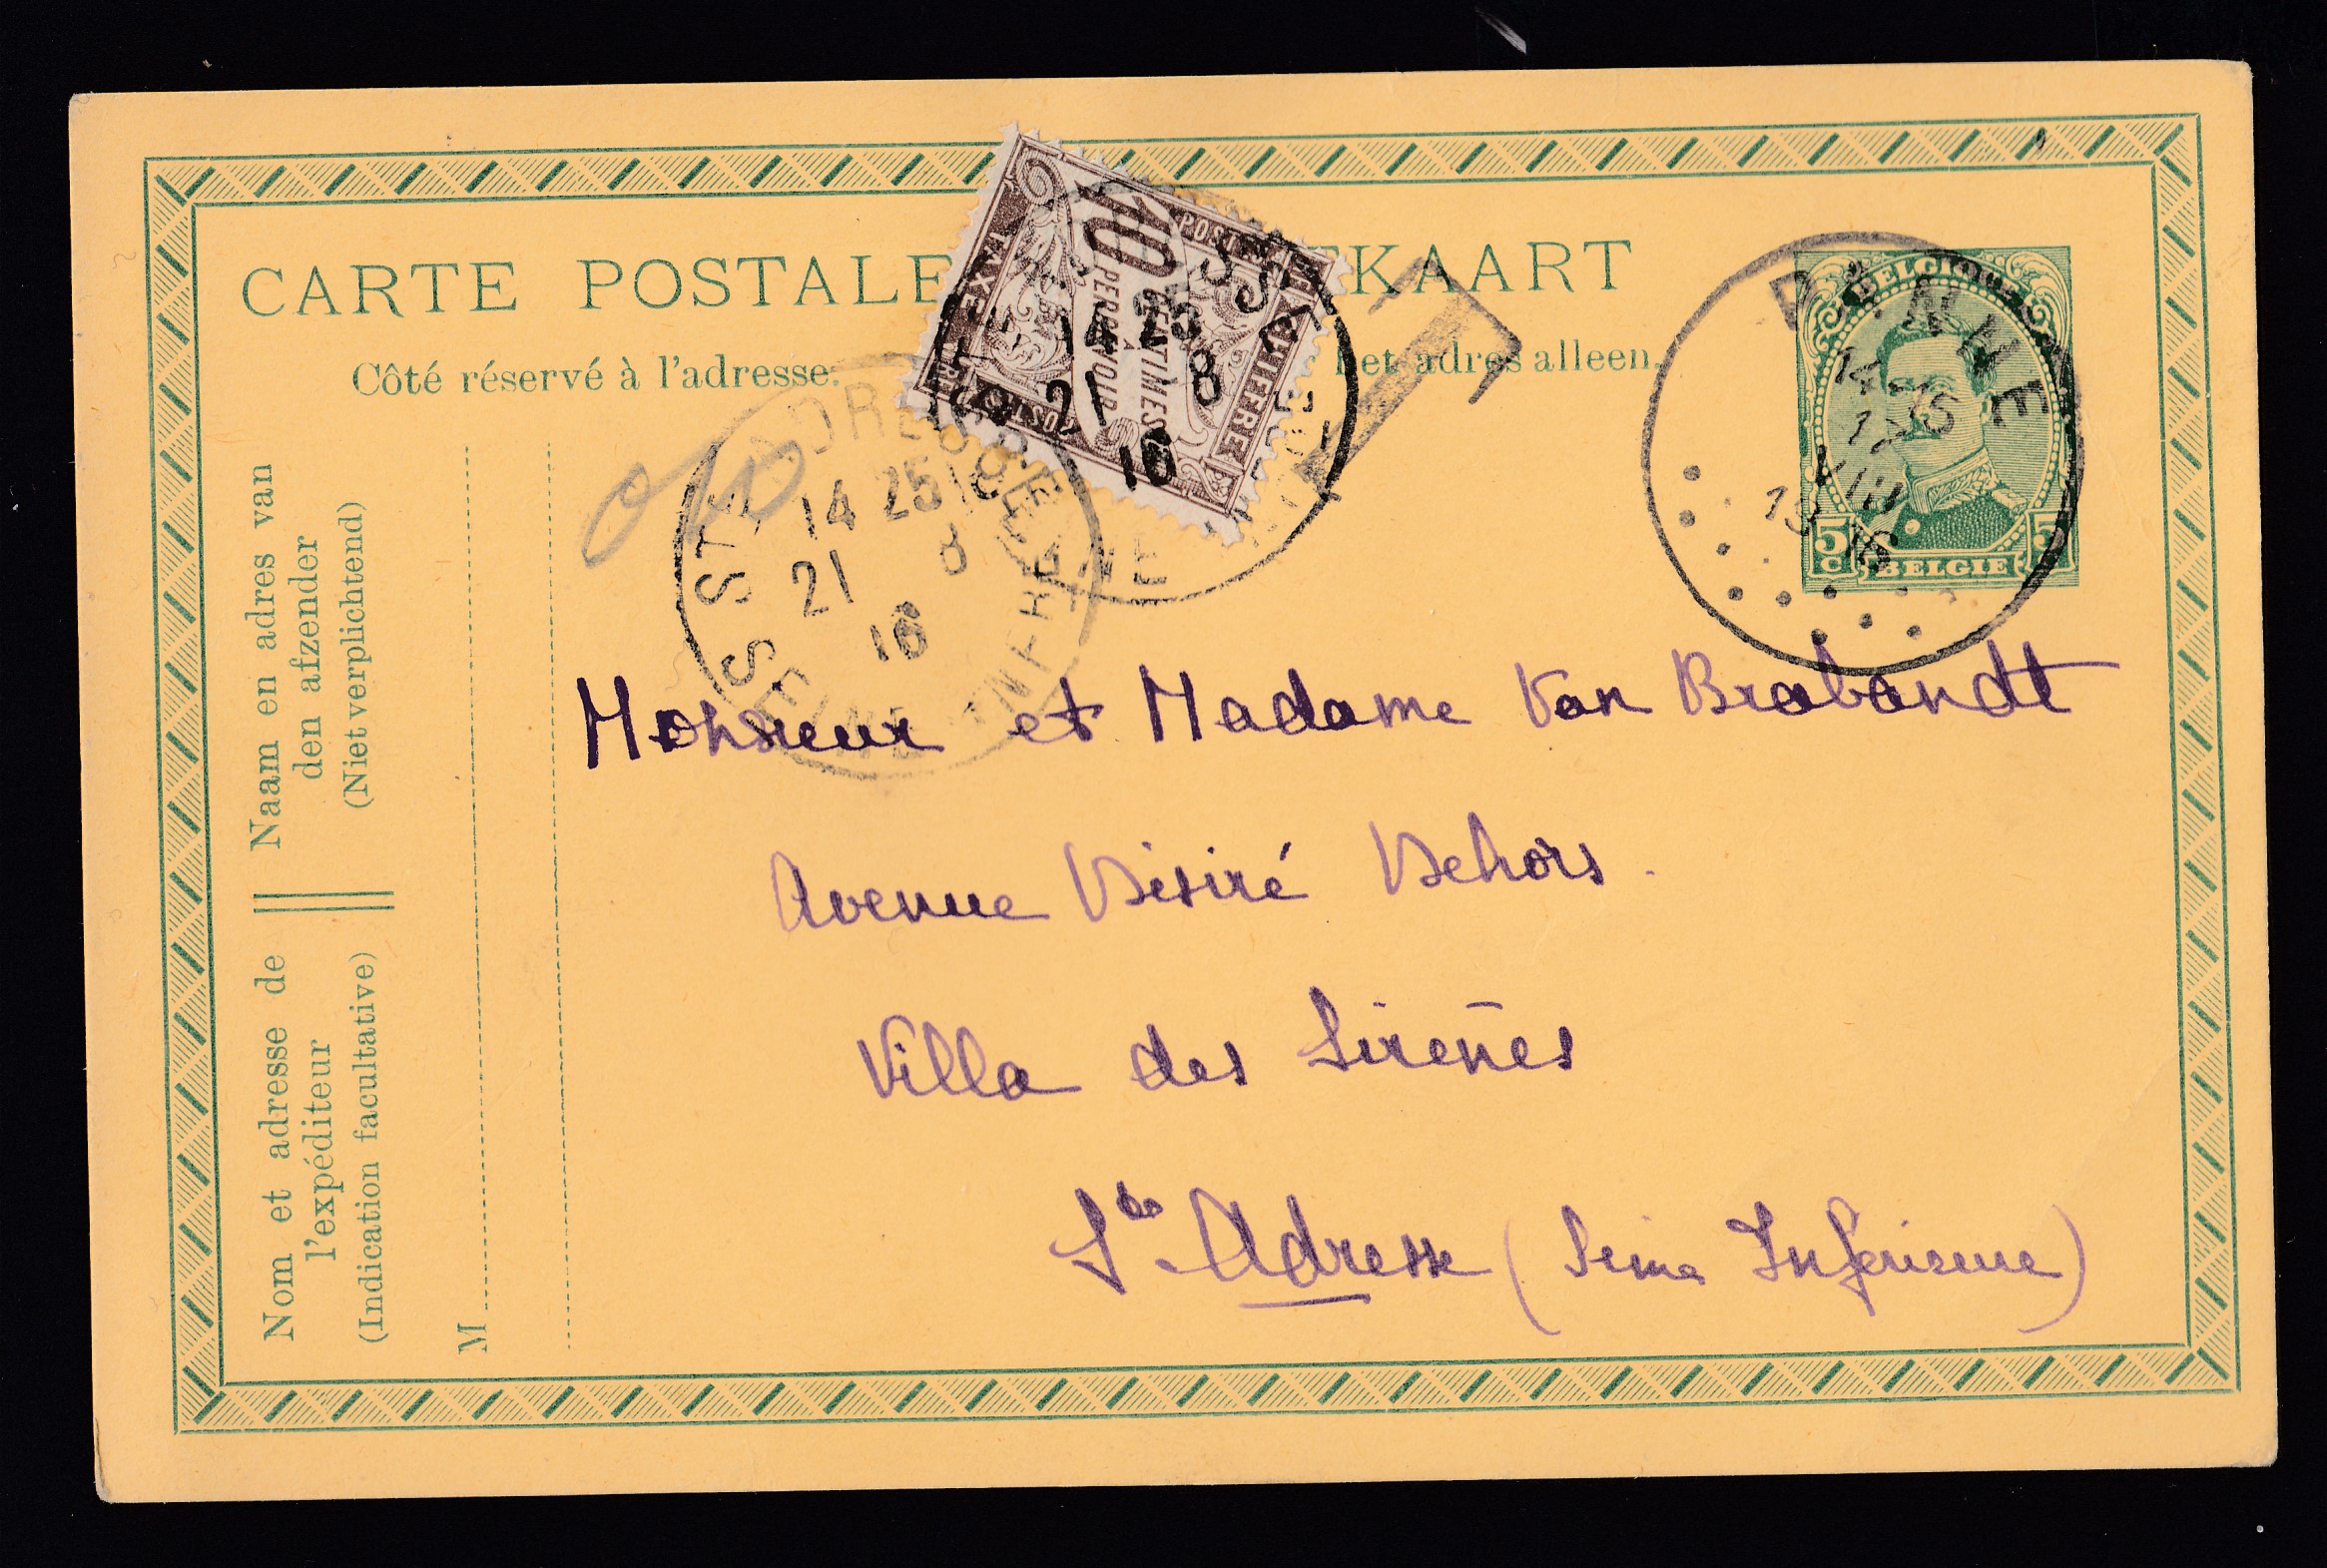 CARTE POSTALE
KAART
Côté réservé à l'adresse.
het adres alleen.
BELGIQUE
5 c
5
BELGIE
PANNE
14-15
12
VIII
19 16
POSTES
CHIFFRE
TAXE
10
CENTIMES
À
PERCEVOIR
14 25
21 8
16
T
STE ADRESSE
14 25
21 8
16
SEINE INFRE
Monsieur et Madame Van Brabandt
Avenue Désiré Dehors.
Villa des Sirènes
Ste Adresse (Seine Inférieure)
Naam en adres van
den afzender
(Niet verplichtend)
Nom et adresse de
l'expéditeur
(Indication facultative)
M